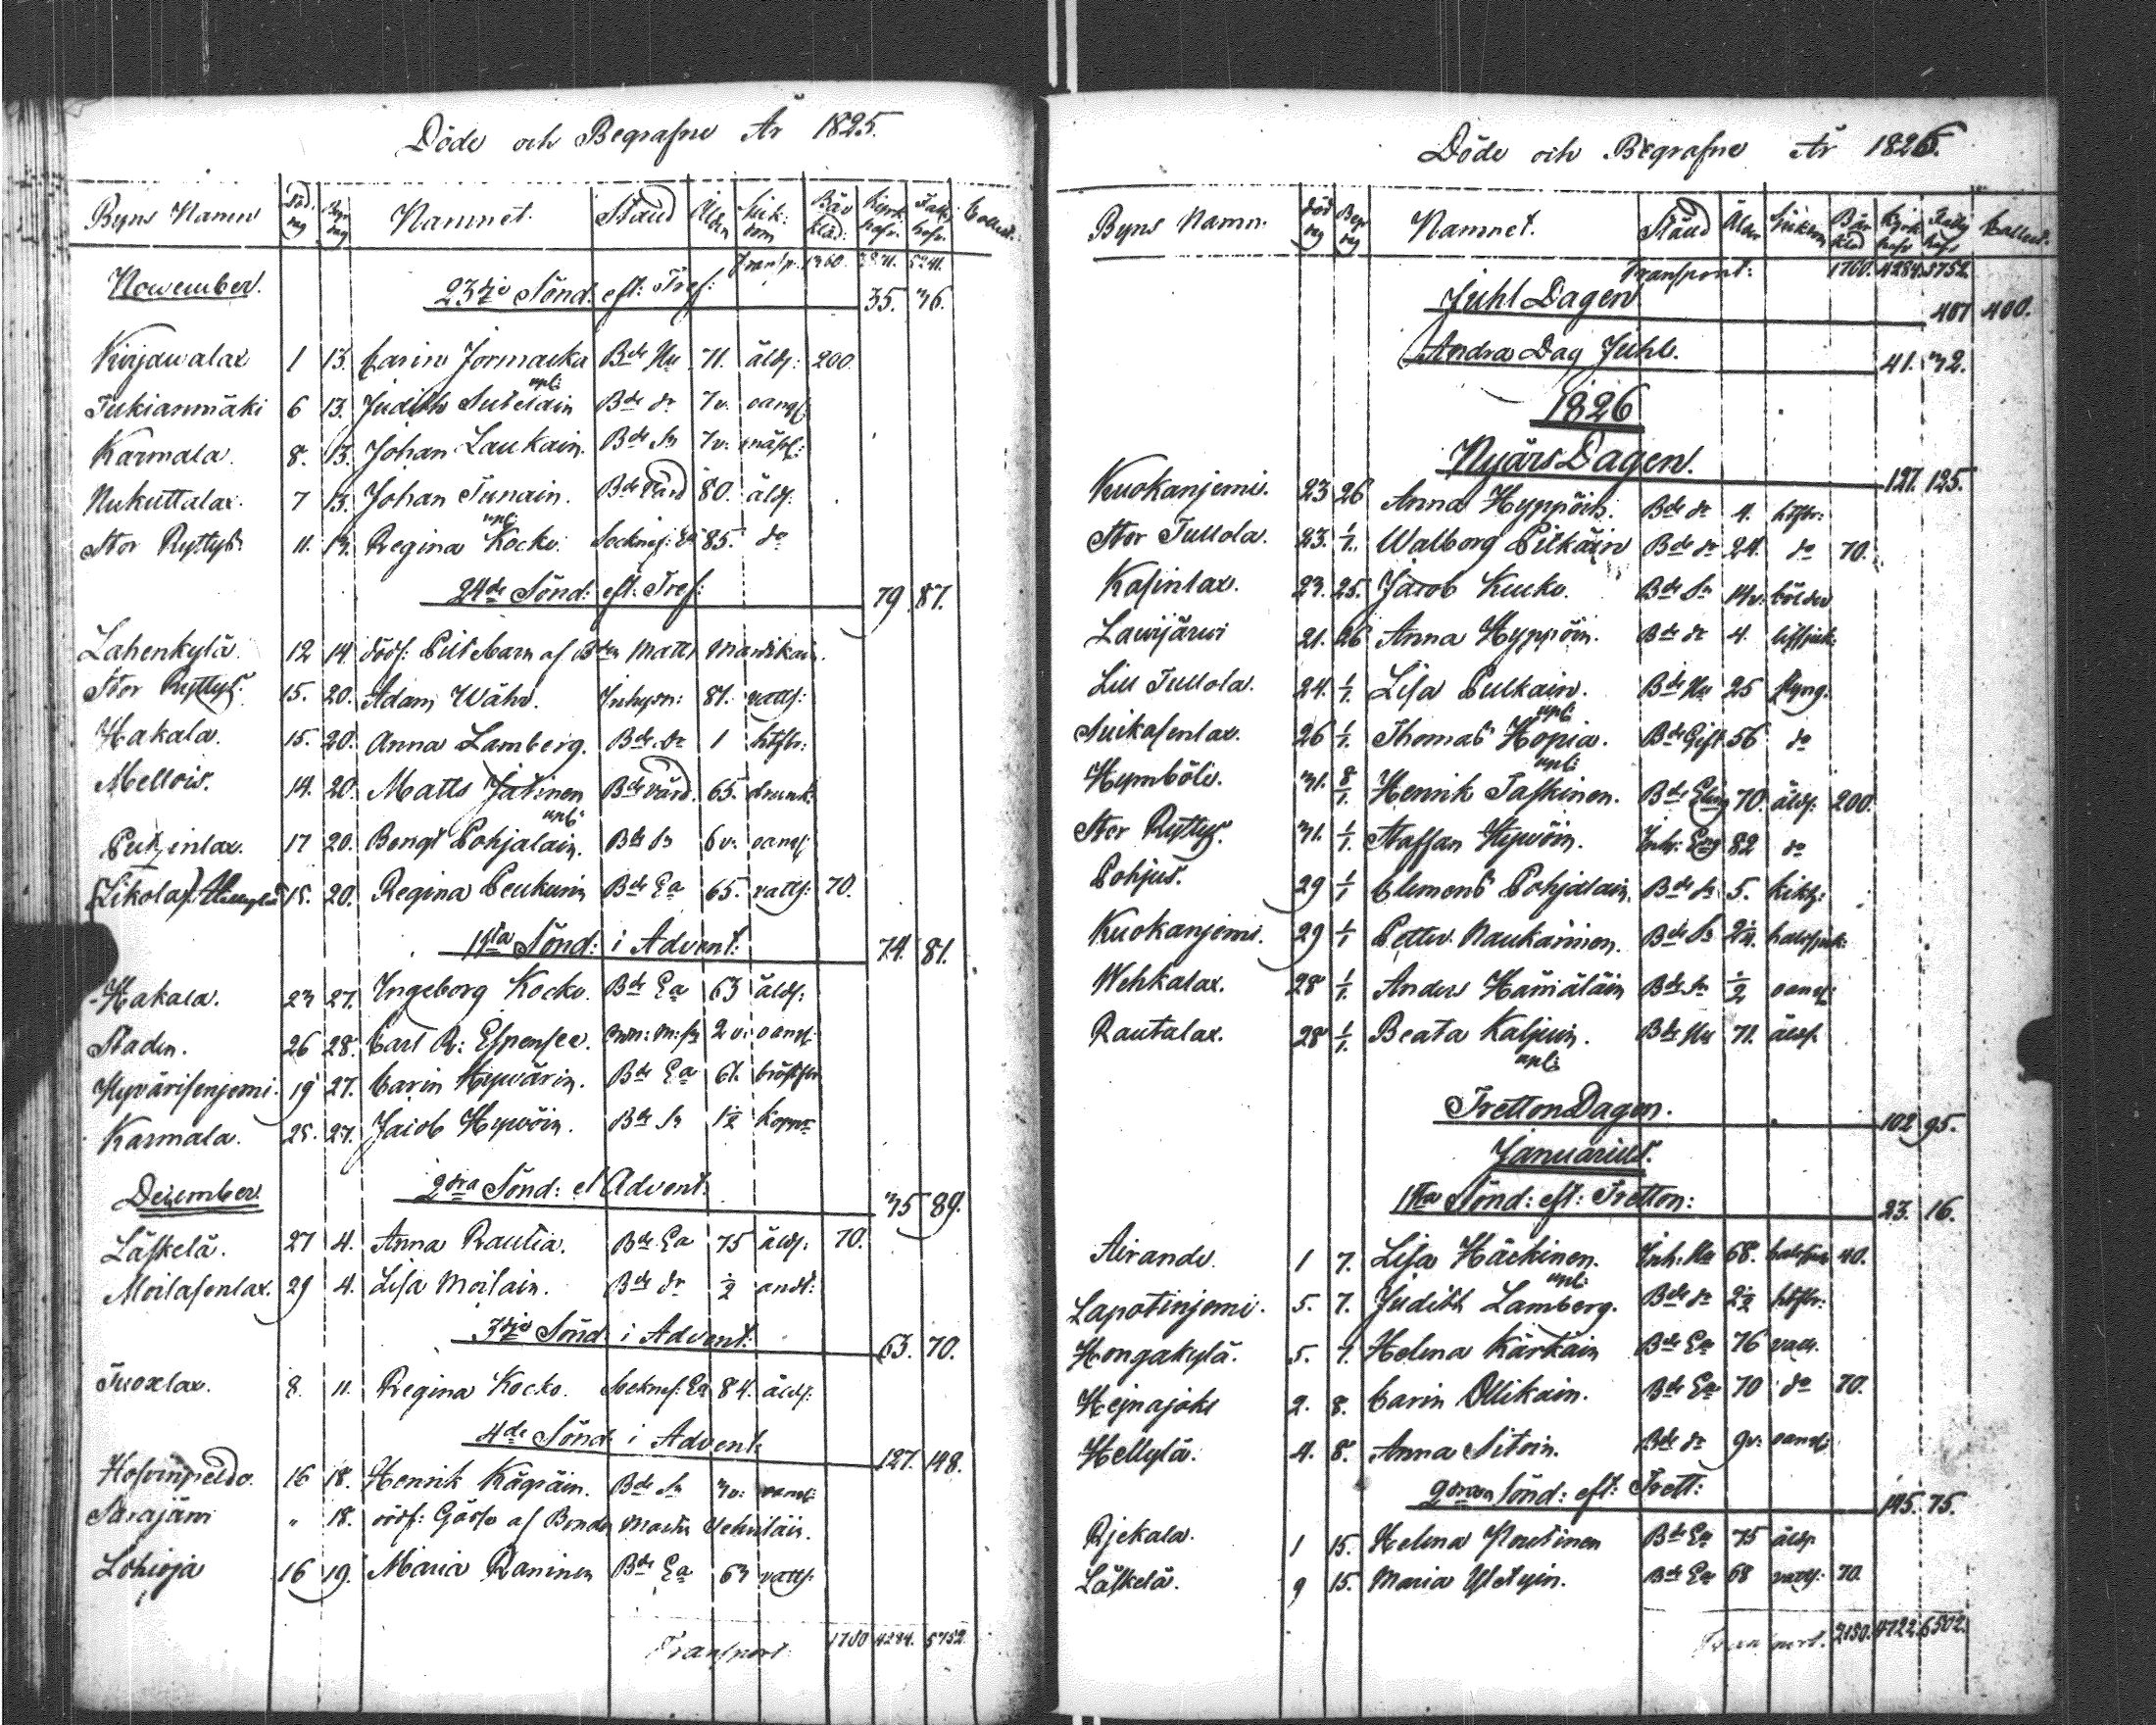 Döde och Begrafne År 1825.
Byns Namn Död. dag Begr. dag Namnet. Stånd Ålder Siukdom Bår kläd: Kyrk. hafv. Fatt. hafv. Collect.
Transp. 1360. 3871. 5241.
November. 23dje Sönd: eft: Tref: 35. 36.
Kirjawalax 1 13. Carin Jormacka Bde Hu 71. åldr: 200.
Tukianmäki 6 13. Judith Sutelain Bde dr 7v. oangf:
Karmala. 8. 13. Johan Laukain. Bde Sn 7v. mäsl:
Nukuttalax. 7 13. Johan Tenain. Bde Värd 80. åldr.
upl:
Stor Ryttys. 11. 13. Regina Kocko. Socknef: Ea 85. do
24de Sönd: eft. Tref: 79. 87.
Lahenkylä. 12 14. dödf: Piltebarn af Bden Matts Manikain.
Stor Ryttys. 15. 20. Adam Wäho. Inhysn: 81. vatts:
Hakala. 15. 20. Anna Lamberg. Bde dr 1 htsfbr:
Mellois. 14. 20. Matts Jätinen Bde värd. 65. drunk:
upl:
Putzinlax. 17 20. Bengt Pohjalain. Bde Sn 6v. oangf:
[Likolax]. Hellylä 15. 20. Regina Peukuin Bde Ea 65. vatts: 70.
1sta Sönd: i Advent: 74. 81.
Hakala. 23 27. Ingeborg Kocko. Bde Ea 63 åldr:
Staden. 26 28. Carl R: Espensee. m: Sn 2v. oangf:
Hyvärisenjemi. 19 27. Carin Hyvärin. Bde Ea 61. bröstfbr
Karmala. 25. 27. Jacob Hyvöin. Bde Sn 1½ Koppor
December. 2dra Sönd: i Advent: 35 89.
Läskelä. 27 4. Anna Rautia. Bde Ea 75 åldr: 70.
Moilasenlax. 29 4. Lisa Moilain. Bde dr ½ andt:
3dje Sönd: i Advent: 63. 70.
Tuoxlax. 8. 11. Regina Kocko. Socknef: Ea 84. åldr:
4de Sönd: i Advent: 127. 148.
Hofvinpeldo. 16 18. Henrik Kägräin. Bde Sn 3v: oangf:
Sarajärvi " 18. dödf: Gåsse af Bonden Martin
Lohioja 16 19. Maria Raninen Bde Ea 63 vatts:
Transport: 1760 4284. 5752.
Döde och Begrafne År 1826.
Byns Namn. Död dag Begr dag Namnet. Stånd Ålder Siukdom Bår kläd Kyrk hafv Fattig hafv Collect.
Transport: 1760. 4284. 5752.
Juhl Dagen 407 400.
Andra Dag Juhl. 41. 32.
1826
Nyårs Dagen. 127. 125.
Kuokanjemi. 23 26 Anna Hyppöin. Bde dr 4. htsfbr:
Stor Tullola. 23. 1/1. Walborg Pitkäin Bde dr 24. do 70.
Kasinlax. 23. 25. Jacob Kucko. Bde Sn 14v. bölder
Lawijärwi 21. 26 Anna Hyppöin. Bde dr 4. hetssjuk:
Lill Tullola. 24. 1/1. Lisa Pulkain. Bde Hu 25 flyng.
upl:
Suikasenlax. 26 1/1. Thomas Hopia. Bde Gift 56 do
upl:
Hymböle. 31. 8/1. Henrik Taskinen. Bde Ekling 70. åldr. 200.
Stor Ryttys. 31. 1/1. Staffan Hyvöin. Inh: Eng 82 do
Pohjus. 29 1/1 Clemens Pohjalain. Bde Sn 5. kikh:
Kuokanjemi. 29 1/1 Petter Naukarinen. Bde Sn 2¼. halssjuk:
Wehkalax. 28 1/1. Anders Hämäläin Bde Sn ½ oangf:
Rautalax. 28 1/1. Beata Kaljuin. Bde Hu 71. åldr.
upl:
Tretton Dagen. 102 95.
Januarius.
1sta Sönd: eft: Tretton: 23. 16.
Airande. 1 7. Lisa Häckinen. Inh: Hu 68. halssjuk 40.
upl:
Lapotinjemi. 5. 7. Judith Lamberg. Bde dr 2½ htsfbr:
Hongakylä. 5. 7. Helena Kärkäin Bde Ea 76 vatts.
Hejnajoki 2. 8. Carin Ollikain. Bde Ea 70 do 70.
Hellylä. 4. 8. Anna Sitoin. Bde dr 9v: oangf:
2dra Sönd: eft: Trett: 145. 75.
Rjekala. 1 15. Helena Noutinen Bde Ea 75 åldr.
Läskelä. 9 15. Maria Yletyin. Bde Ea 68 vatts: 70.
Transport. 2150. 4722. 6502.